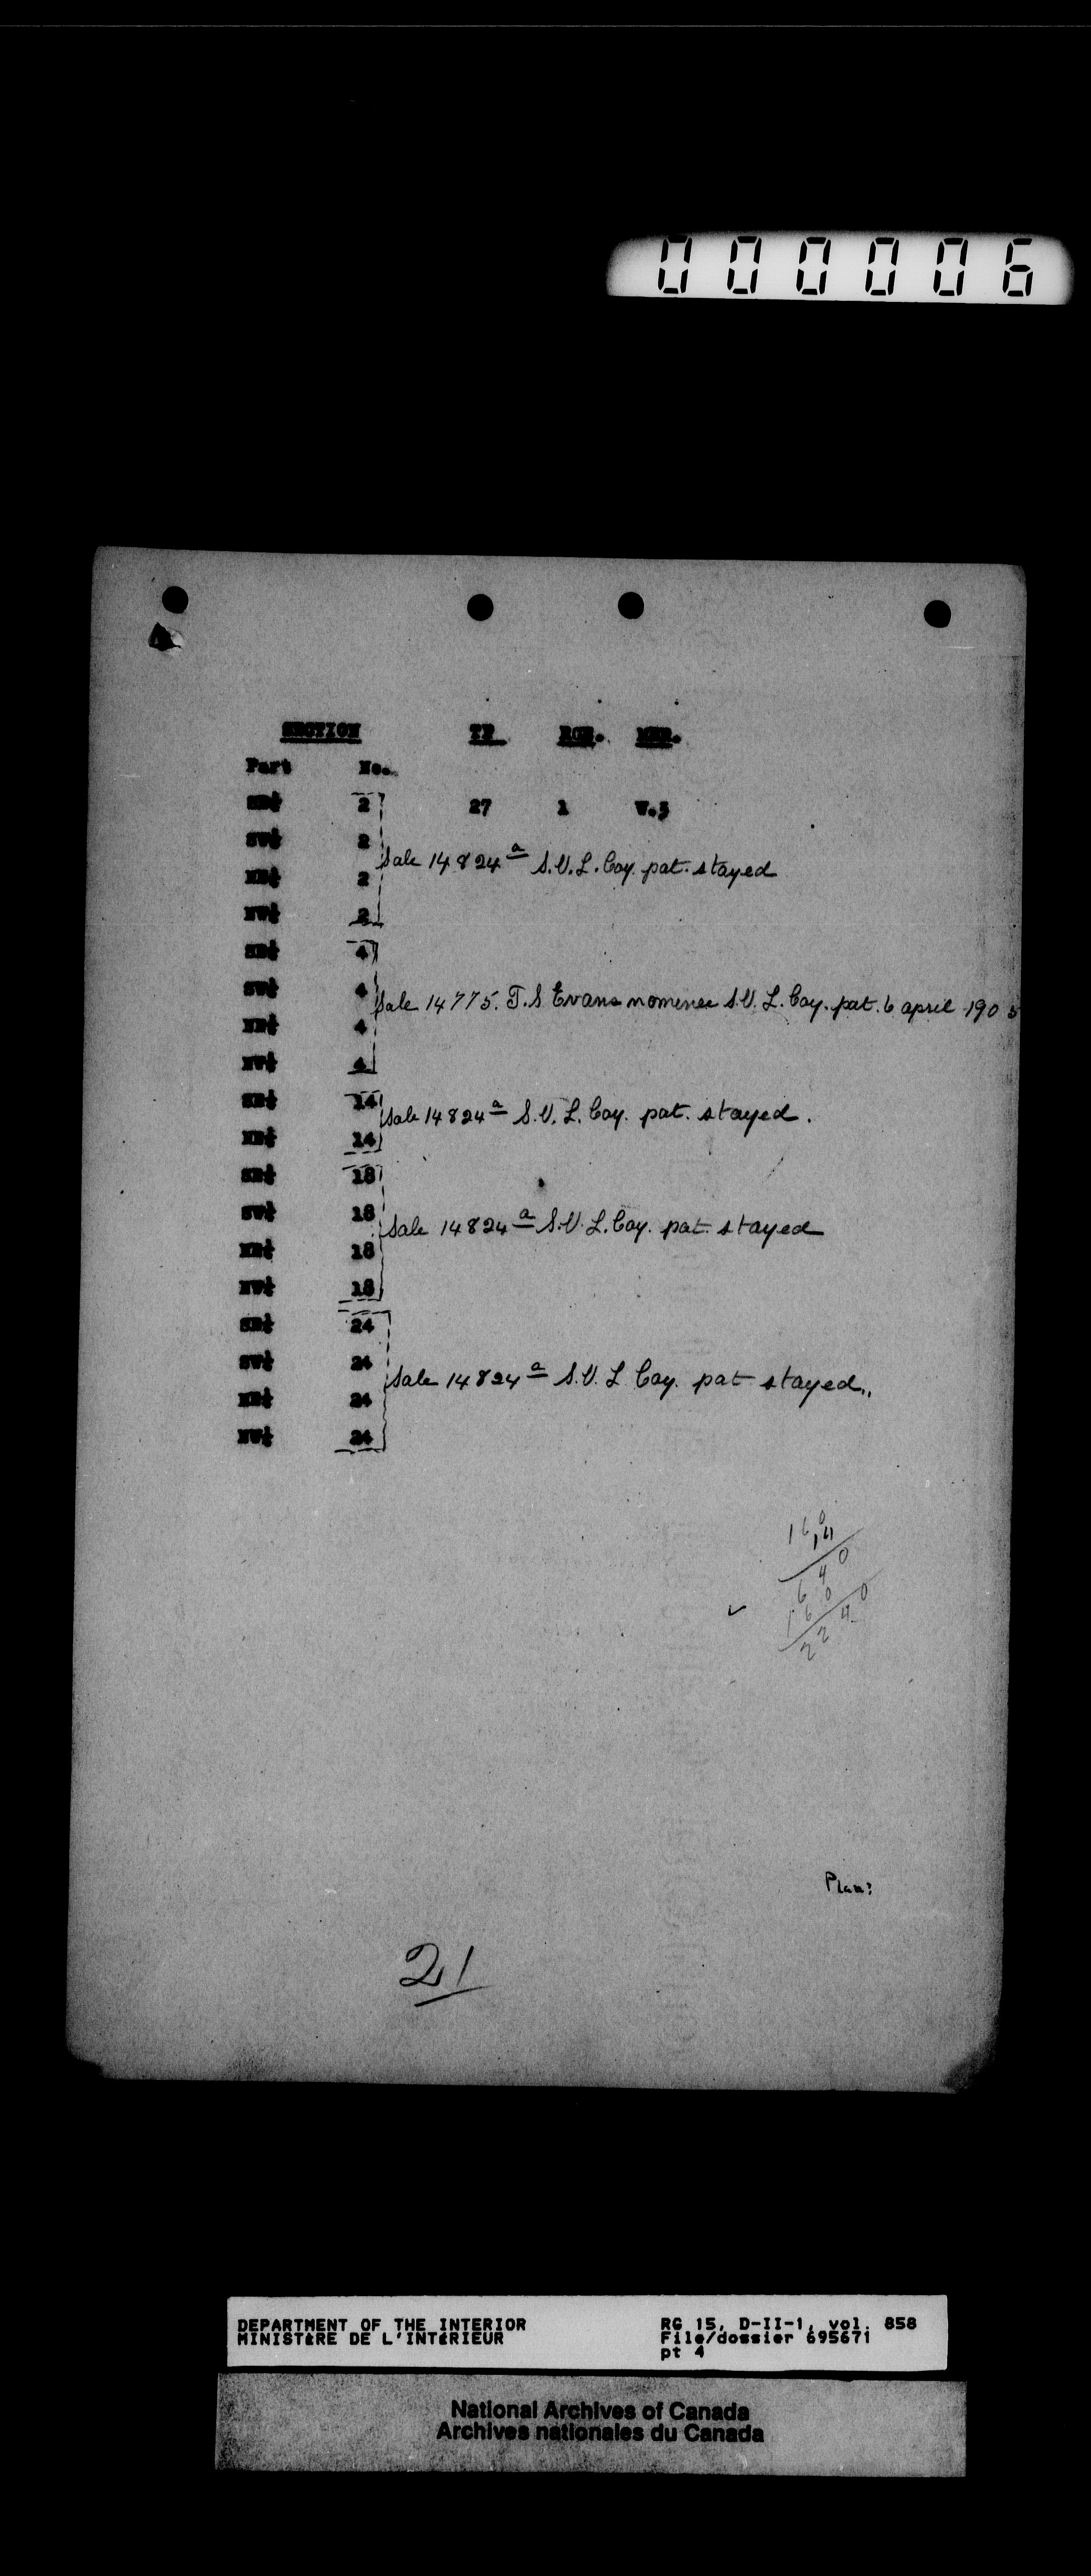 000006
SECTION TP. RGE. MER.
Part No.
SE¼ 2 27 1 W.3
SW¼ 2
Sale 14824 a S.V.L. Coy. pat. stayed
NE¼ 2
NW¼ 2
SE¼ 4
SW¼ 4
Sale 14775. T.S. Evans nominee S.V.L. Coy. pat. 6 april 1905
NE¼ 4
NW¼ 4
SE¼ 14
Sale 14824 a S.V.L. Coy. pat. stayed.
NE¼ 14
SE¼ 18
SW¼ 18
Sale 14824 a S.V.L. Coy. pat. stayed
NE¼ 18
NW¼ 18
SE¼ 24
SW¼ 24
Sale 14824 a S.V.L Coy. pat stayed.
NE¼ 24
NW¼ 24
160
14
640
160
2240
21
DEPARTMENT OF THE INTERIOR
MINISTÈRE DE L'INTÉRIEUR
RG 15, D-II-1, vol. 858
File/dossier 695671
pt 4
National Archives of Canada
Archives nationales du Canada